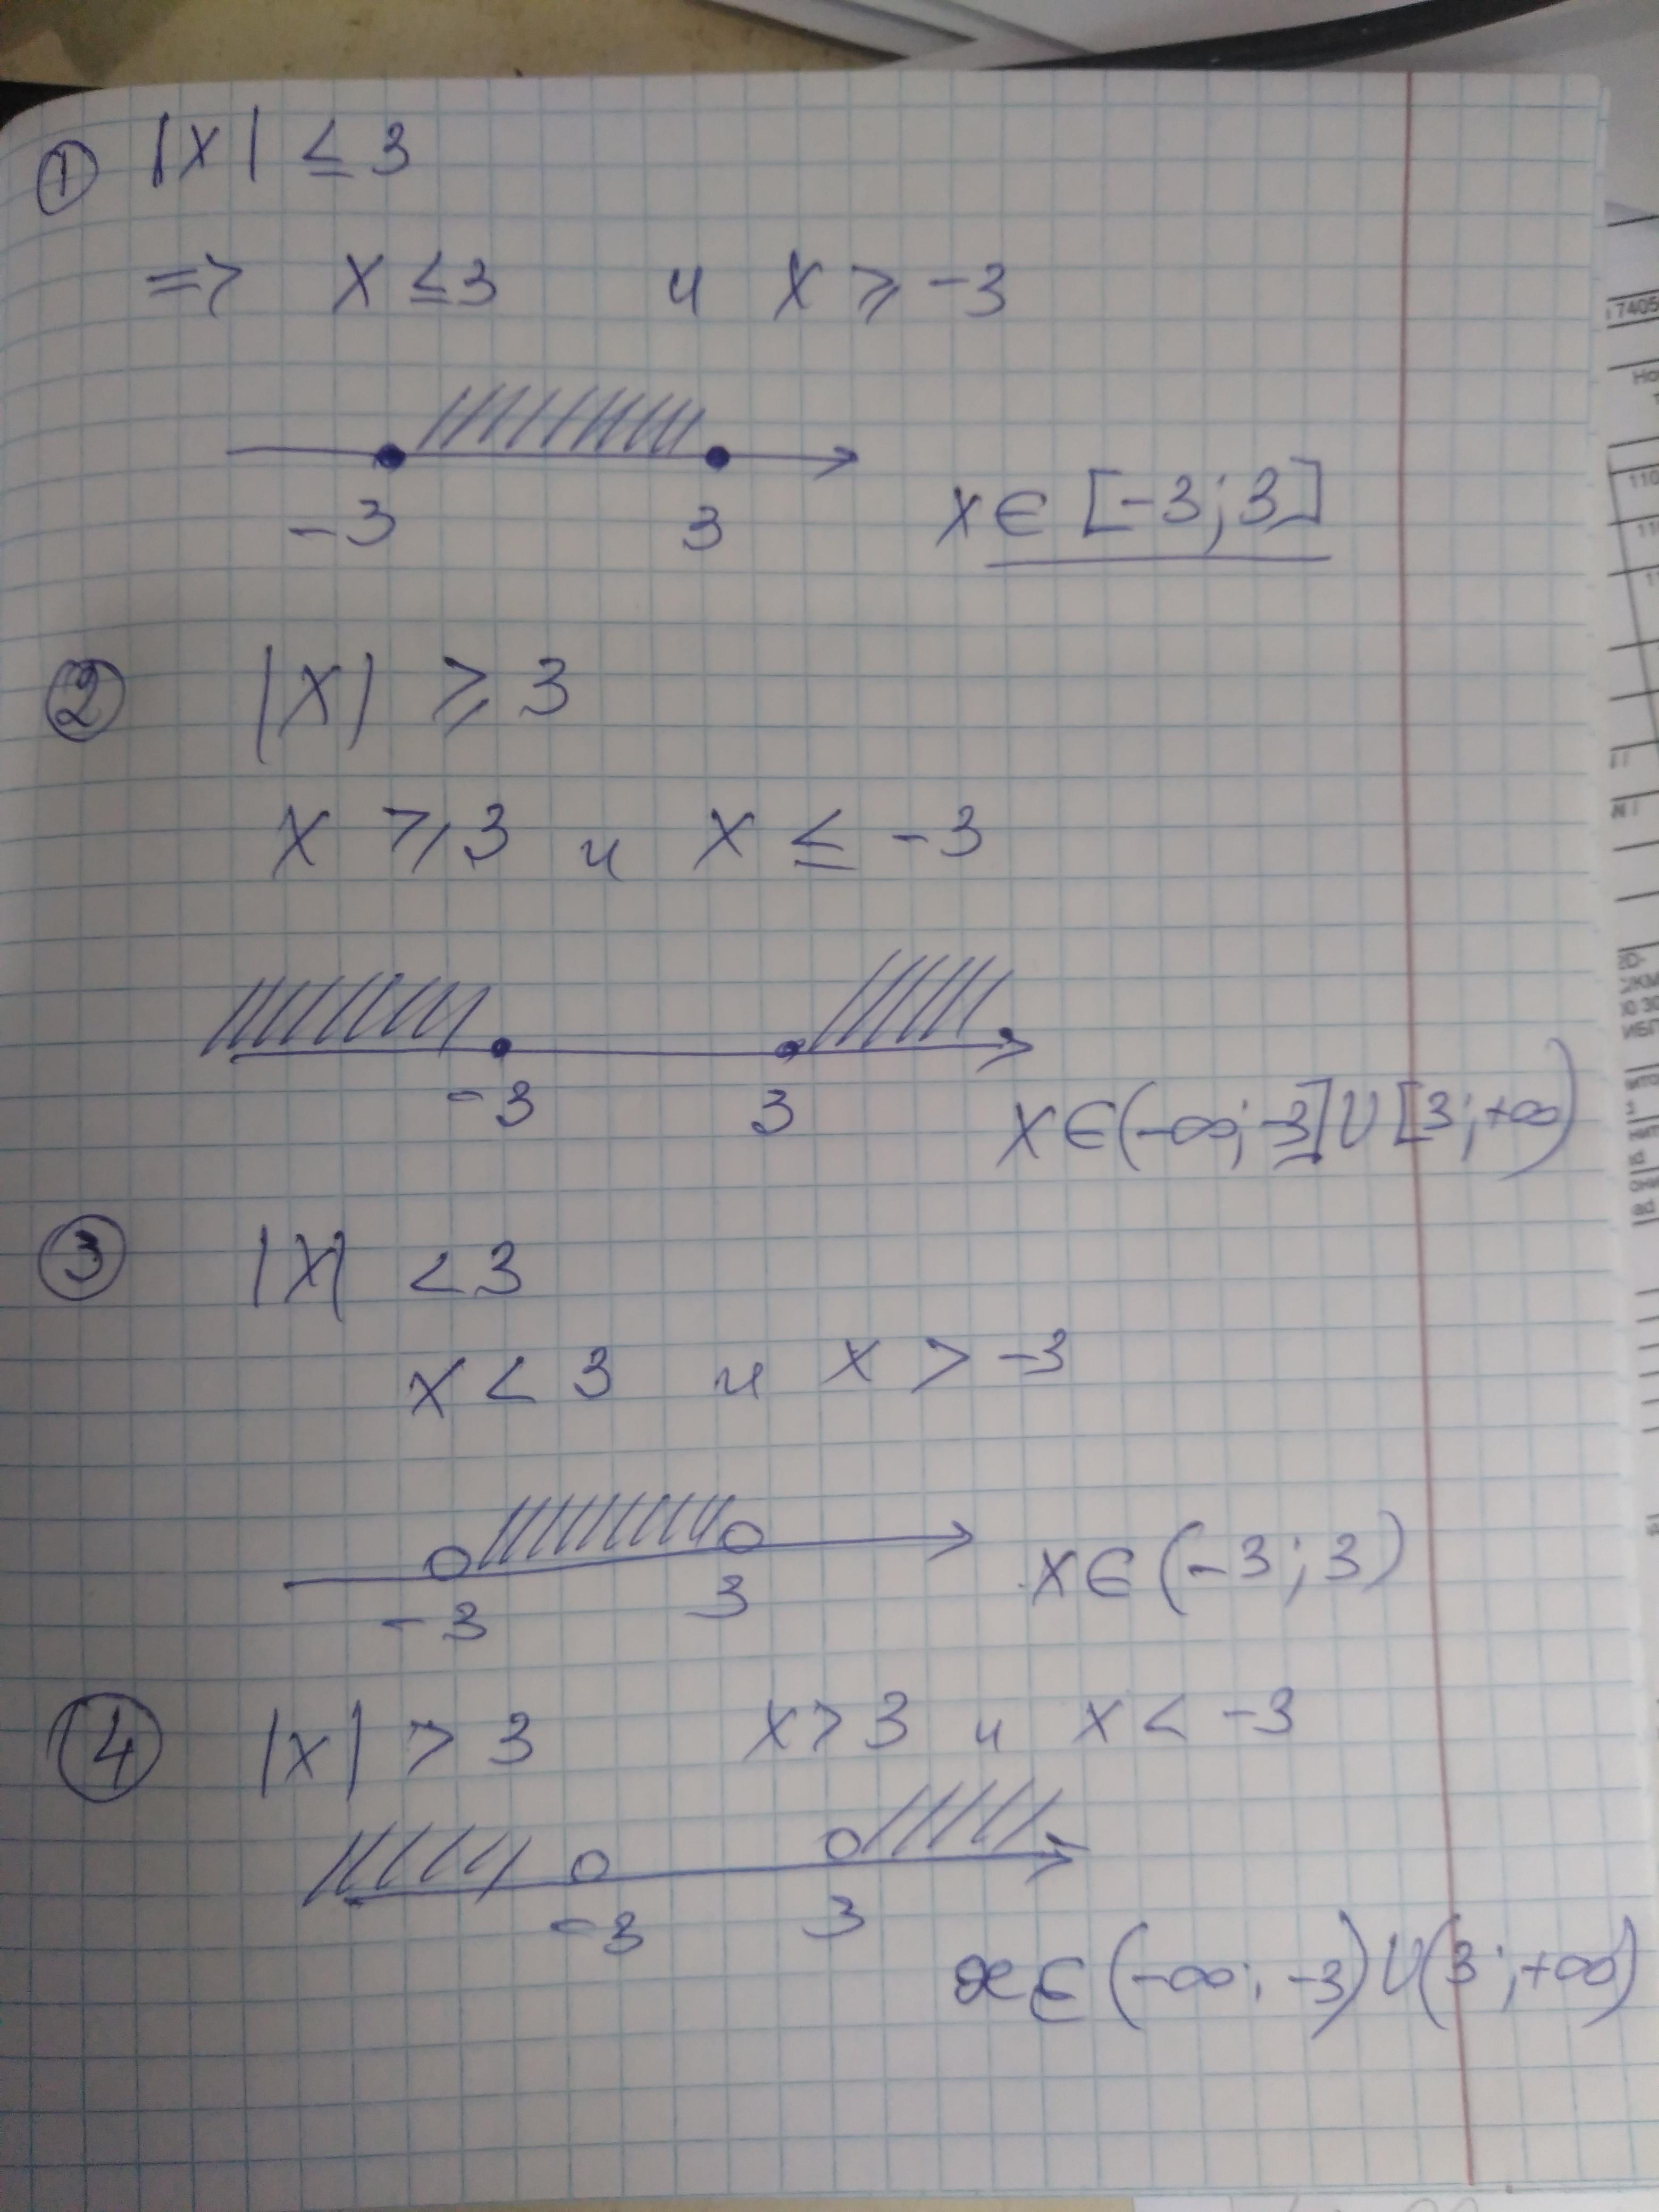 ① |x| ≤ 3
=> x ≤ 3 и x ≥ -3
-3 3 x ∈ [-3; 3]
② |x| ≥ 3
x ≥ 3 и x ≤ -3
-3 3 x ∈ (-∞; -3] ∪ [3; +∞)
③ |x| < 3
x < 3 и x > -3
-3 3 x ∈ (-3; 3)
④ |x| > 3 x > 3 и x < -3
-3 3
x ∈ (-∞; -3) ∪ (3; +∞)
7405